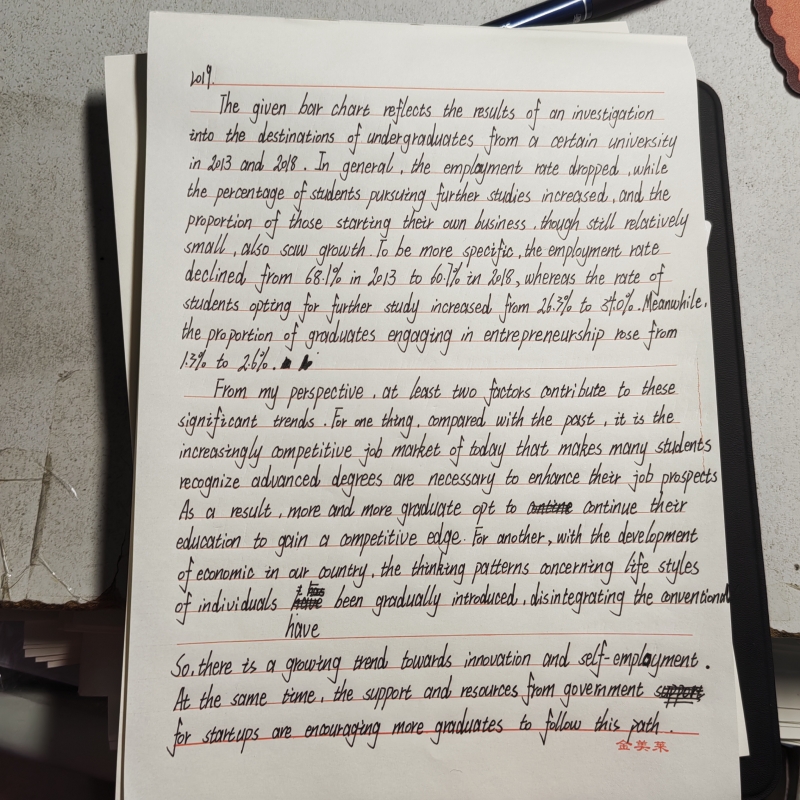 2019.
The given bar chart reflects the results of an investigation
into the destinations of undergraduates from a certain university
in 2013 and 2018. In general, the employment rate dropped, while
the percentage of students pursuing further studies increased, and the
proportion of those starting their own business, though still relatively
small, also saw growth. To be more specific, the employment rate
declined from 68.1% in 2013 to 60.7% in 2018, whereas the rate of
students opting for further study increased from 26.3% to 34.0%. Meanwhile,
the proportion of graduates engaging in entrepreneurship rose from
1.3% to 2.6%.
From my perspective, at least two factors contribute to these
significant trends. For one thing, compared with the past, it is the
increasingly competitive job market of today that makes many students
recognize advanced degrees are necessary to enhance their job prospects
As a result, more and more graduate opt to continue their
education to gain a competitive edge. For another, with the development
of economic in our country, the thinking patterns concerning life styles
of individuals been gradually introduced, disintegrating the conventional
have
So, there is a growing trend towards innovation and self-employment.
At the same time, the support and resources from government
for startups are encouraging more graduates to follow this path.
金美莱